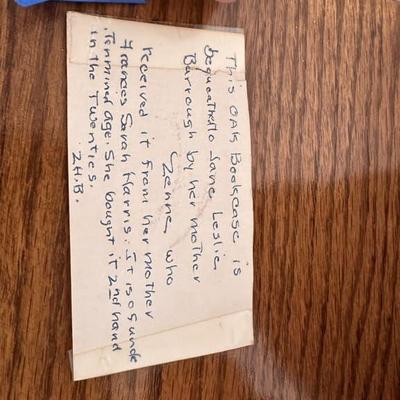 This OAK Bookcase is
bequeathed to Jane Leslie
Burrough by her mother
Zenne, who
received it from her mother
Frances Sarah Harris. It is of unde
termined age. She bought it 2nd hand
in the Twenties.
Z.H.B.